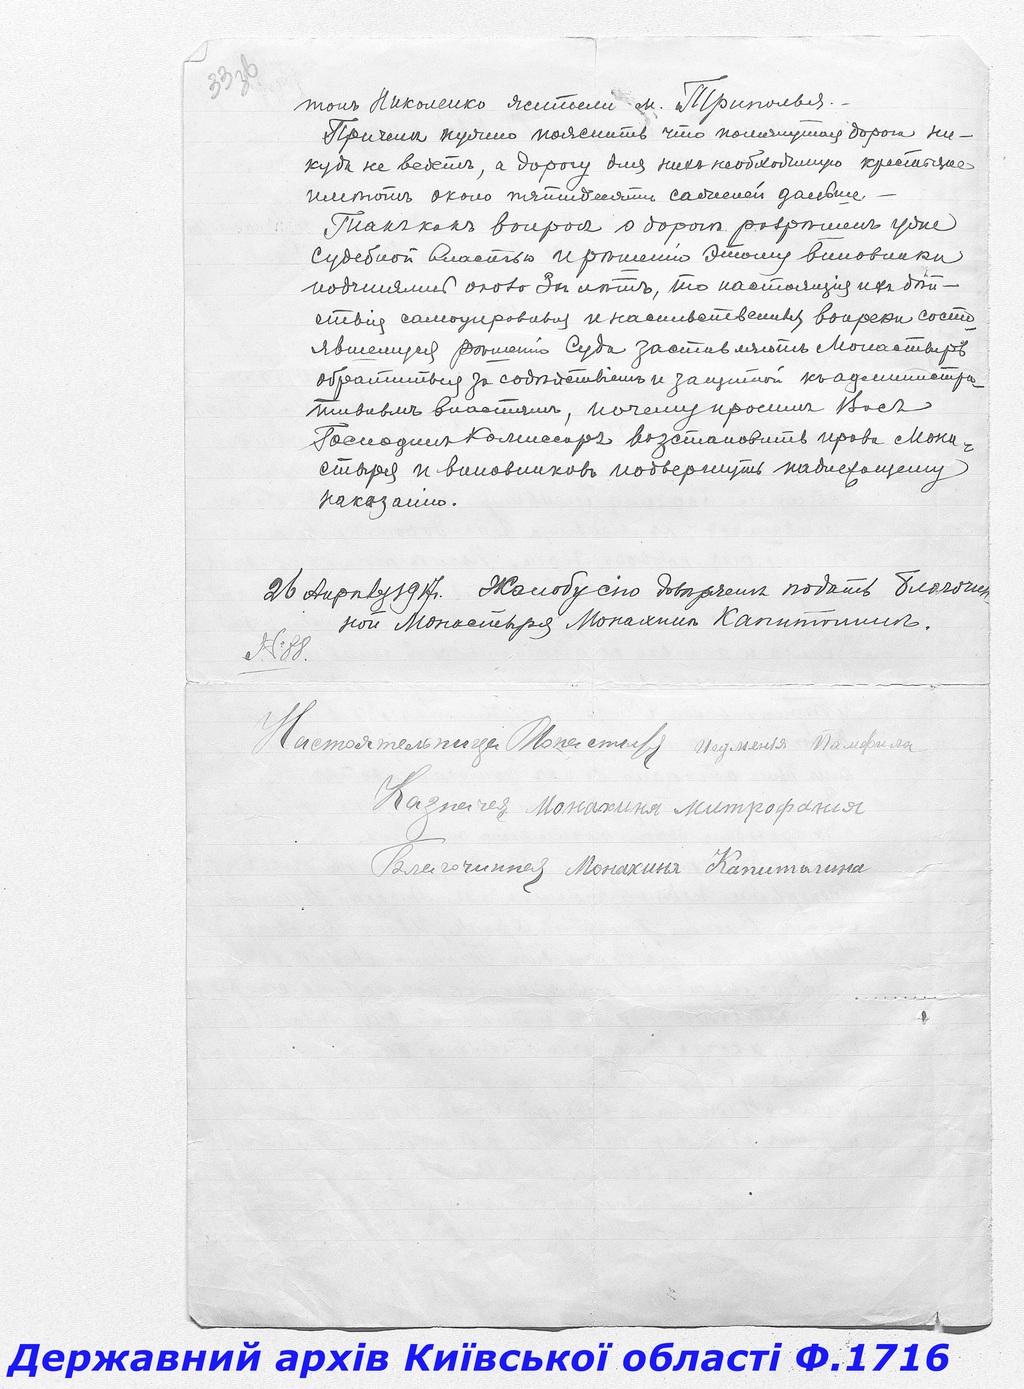 33 зв
тонъ Николенко жители м. Триполья. -
Причемъ нужно пояснить что помянутая дорога ни-
куда не ведетъ, а дорогу для нихъ необходимую крестьяне
имѣютъ около пятидесяти саженей дальше -
Такъ какъ вопросъ о дорогѣ разрѣшенъ уже
судебной властью и рѣшенію этому виновники
подчинялись около 3ы лѣтъ, то настоящія ихъ дѣй-
ствія самоуправныя и насильственныя вопреки состо-
явшемуся рѣшенію Суда заставляютъ Монастырь
обратиться за содѣйствіемъ и защитой къ администра-
тивнымъ властямъ, почему просимъ Васъ
Господинъ Комиссаръ возстановить права Мона-
стыря и виновниковъ подвергнуть надлежащему
наказанію.
26 Апрѣля 1917г. Жалобу сію довѣряемъ подать Благочин
ной Монастыря Монахинѣ Капитолинѣ.
№ 88.
Настоятельница Монастыря игуменія Памфила
Казначея монахиня Митрофания
Благочинная Монахиня Капитолина
Державний архів Київської області Ф.1716